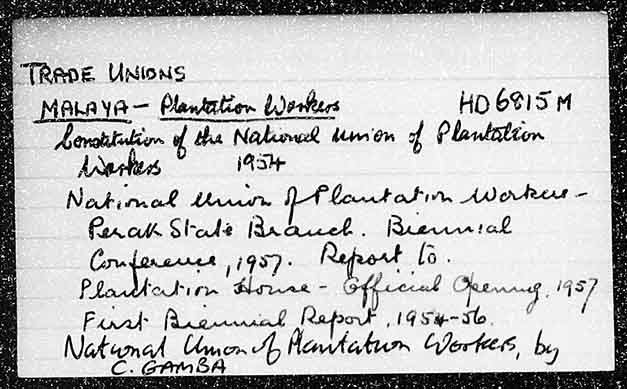 TRADE UNIONS
MALAYA – Plantation Workers HD6815 M
Constitution of the National Union of Plantation
Workers 1954
National Union of Plantation Workers –
Perak State Branch. Biennial
Conference, 1957. Report to.
Plantation House – Official Opening, 1957
First Biennial Report, 1954-56.
National Union of Plantation Workers, by
C. GAMBA